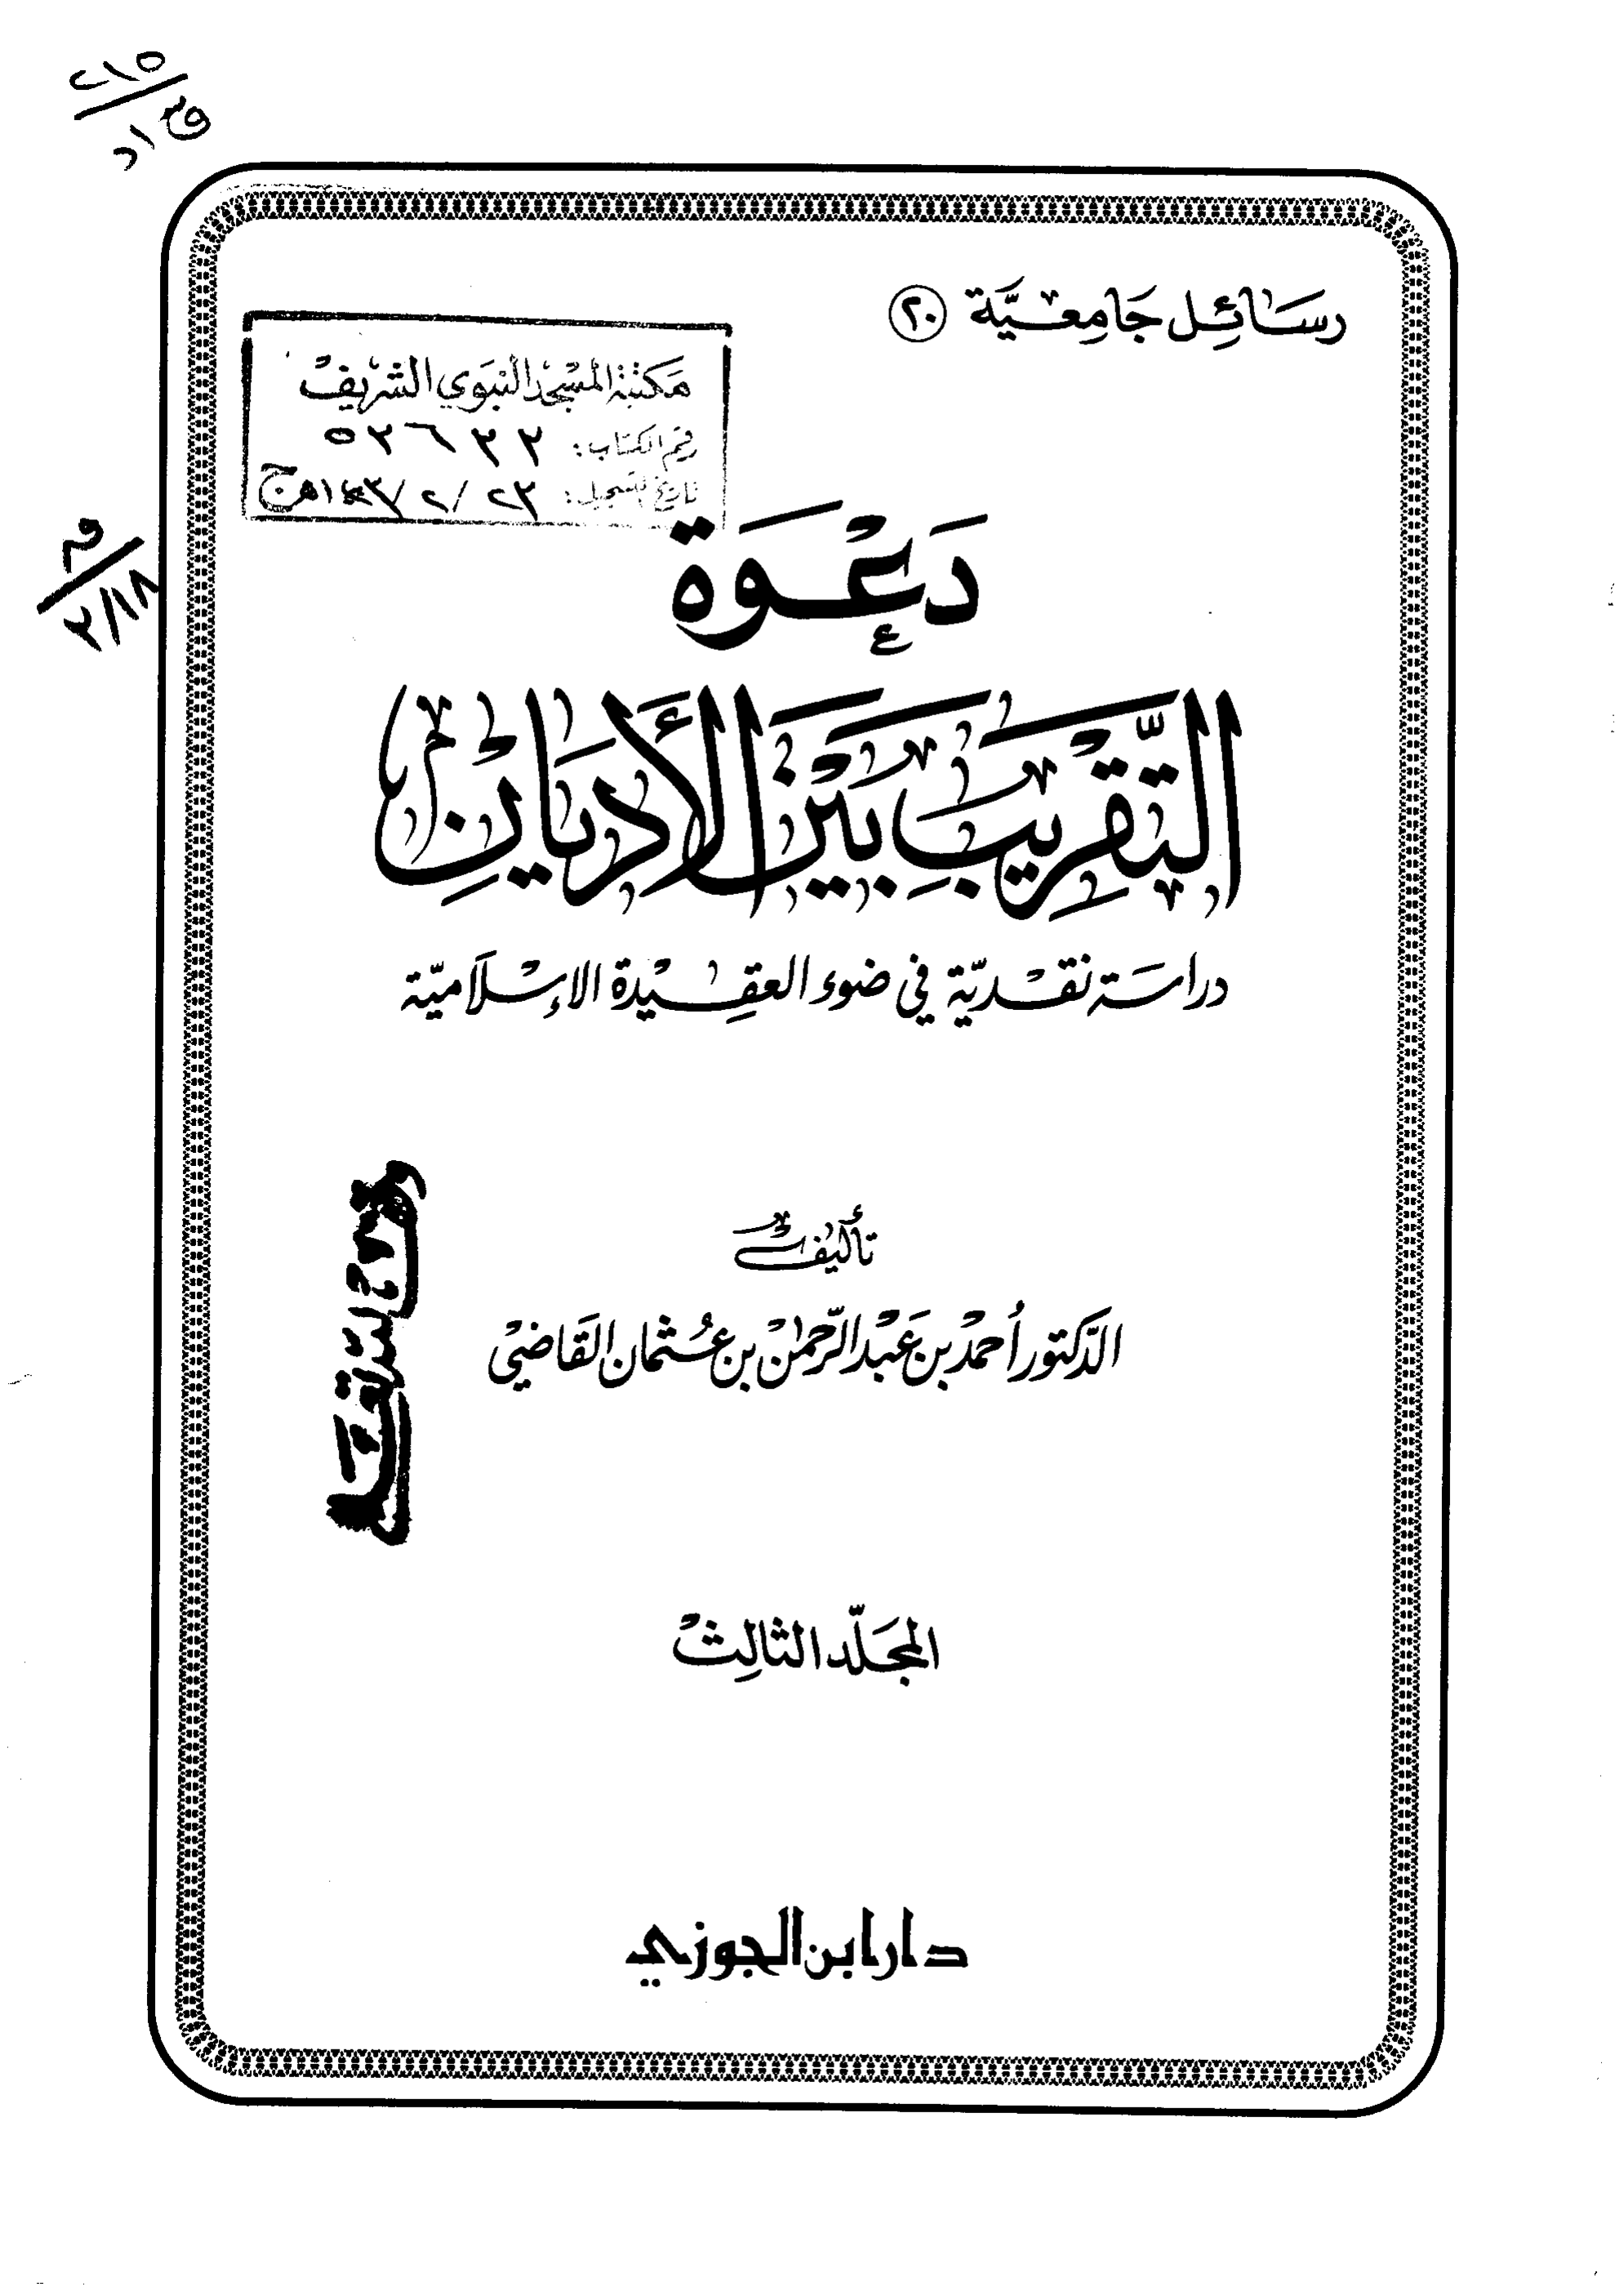 رسائل جامعيّة ٢٠
مكتبة المسجد النبوي الشريف
رقم الكتاب: ٥٢٦٣٢
تاريخ التسجيل: ٢٣ / ٢ /
دَعْوَة
التَّقريبِ بَيْنَ الأديَانِ
دراسَة نقديّة في ضوء العقِيدة الإسْلاميّة
تأليف
الدّكتور أحمد بن عَبْد الرّحمٰن بن عُثمان القَاضيْ
المجَلّد الثالِث
دار ابن الجوزي